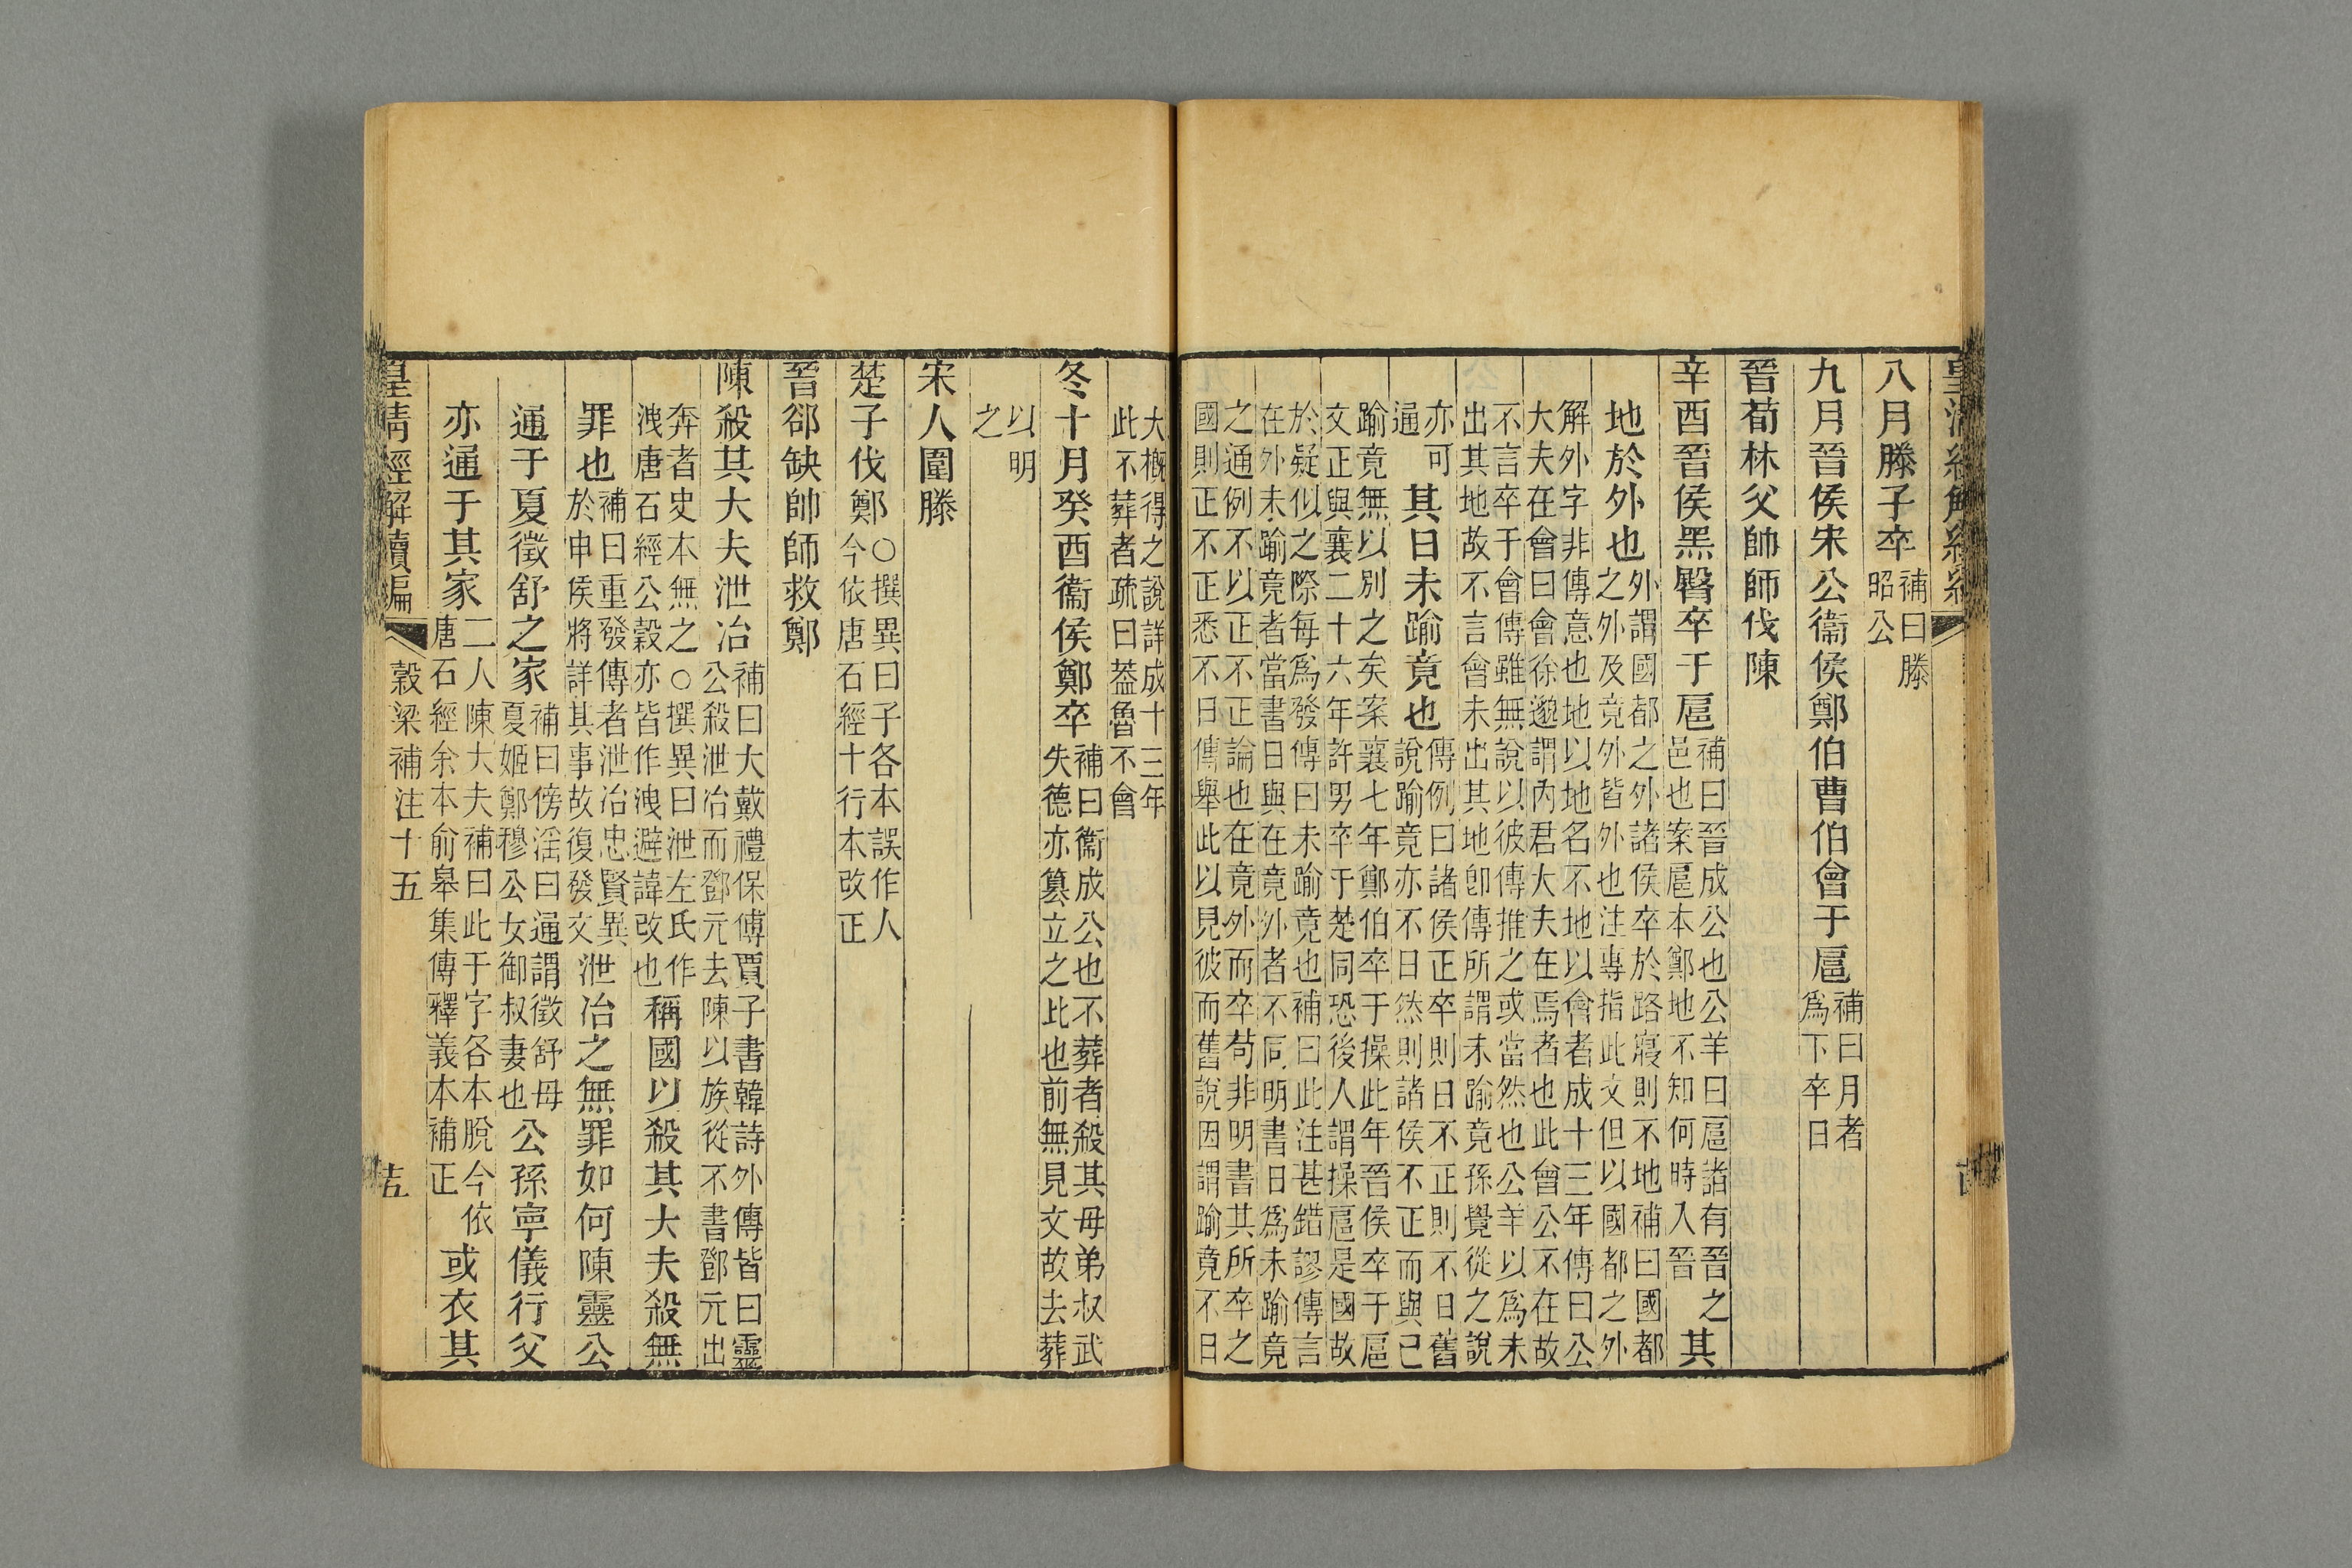 八月滕子卒補曰滕昭公
九月晉侯宋公衞侯鄭伯曹伯會于扈補曰月者爲下卒日
晉荀林父帥師伐陳
辛酉晉侯黑臀卒于扈補曰晉成公也公羊曰扈者何晉之邑也案扈本鄭地不知何時入晉其
地於外也外謂國都之外諸侯卒於路寢則不地補曰國都之外及竟外皆外也注專指此文但以國都之外
解外字非傳意也地以地名不地以會者成十三年傳曰公大夫在會曰會徐邈謂內君大夫在焉者也此會公不在故
不言卒于會傳雖無說以彼傳推之或當然也公羊以爲未出其地故不言會未出其地卽傳所謂未踰竟孫覺從之說
亦可通其日未踰竟也傳例曰諸侯正卒則日不正則不日舊說踰竟亦不日然則諸侯不正而與已
踰竟無以別之矣案襄七年鄭伯卒于操此年晉侯卒于扈文正與襄二十六年許男卒于楚同恐後人謂操扈是國故
於疑似之際每爲發傳曰未踰竟也補曰此注甚錯謬傳言在外未踰竟者當書日與在竟外者不同明書日爲未踰竟
之通例不以正不正論也在竟外而卒苟非明書其所卒之國則正不正悉不日傳舉此以見彼而舊說因謂踰竟不日
大槪得之說詳成十三年此不葬者疏曰葢魯不會
冬十月癸酉衞侯鄭卒補曰衞成公也不葬者殺其母弟叔武失德亦篡立之此也前無見文故去葬
以明之
宋人圍滕
楚子伐鄭○撰異曰子各本誤作人今依唐石經十行本改正
晉郤缺帥師救鄭
陳殺其大夫泄冶補曰大戴禮保傅賈子書韓詩外傳皆曰靈公殺泄冶而鄧元去陳以族從不書鄧元出
奔者史本無之○撰異曰泄左氏作洩唐石經公穀亦皆作洩避諱改也稱國以殺其大夫殺無
罪也補曰重發傳者泄冶忠賢異於申侯將詳其事故復發文泄冶之無罪如何陳靈公
通于夏徵舒之家補曰傍淫曰通謂徵舒母夏姬鄭穆公女御叔妻也公孫寧儀行父
亦通于其家二人陳大夫補曰此于字各本脫今依唐石經余本俞皋集傳釋義本補正或衣其
皇淸經解續編
穀梁補注十五